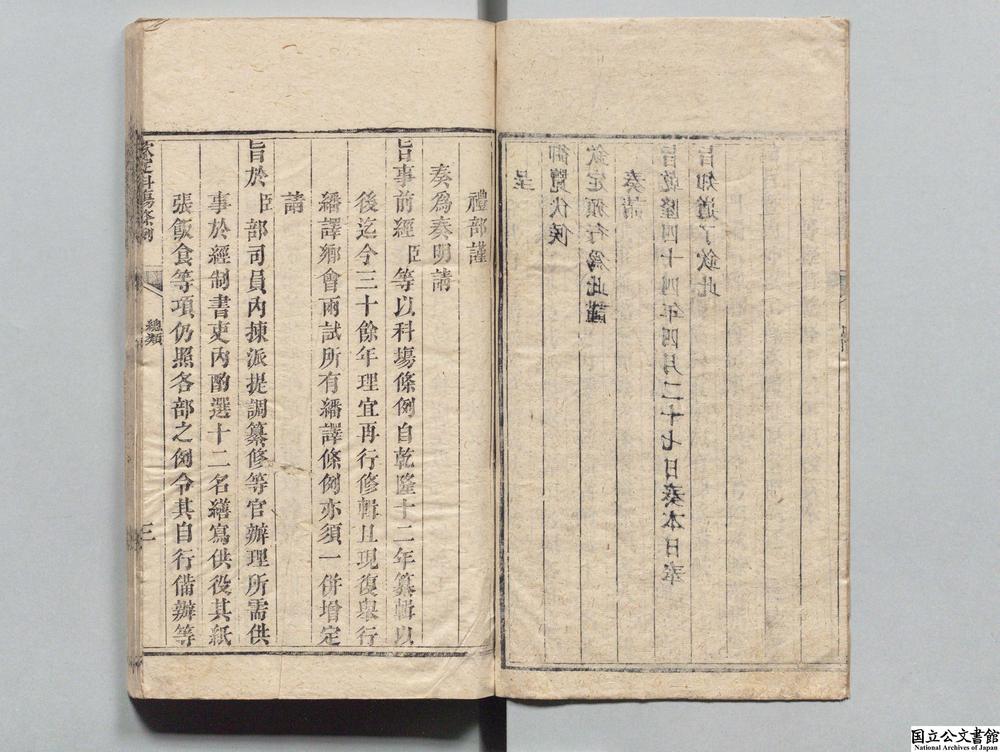 呈
御覽伏候
欽定頒行為此謹
奏請
旨乾隆四十四年四月二十七日奏本日奉
旨知道了欽此
禮部謹
奏為奏明請
旨事前經臣等以科場條例自乾隆十二年纂輯以
後迄今三十餘年理宜再行修輯且現復舉行
繙譯鄉會兩試所有繙譯條例亦須一併增定
請
旨於臣部司員內揀派提調纂修等官辦理所需供
事於經制書吏內酌選十二名繕寫供役其紙
張飯食等項仍照各部之例令其自行備辦等
欽定科場條例
總類
三
国立公文書館
National Archives of Japan